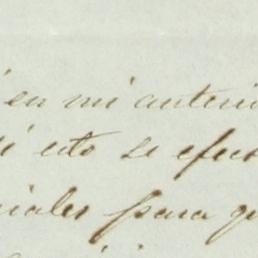 en mi anterio
si esto se efec
iales para qu